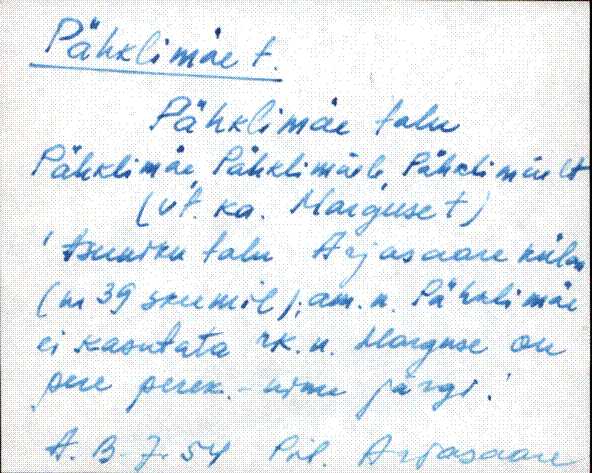 Pähklimäe t.
Pähklimäe talu
Pähklimäe, Pähklimäele, Pähklimäelt
(vt. ka. Marguse t)
'Asuniku talu Arjasaare külas
(nr 39 skeemil); am. n. Pähklimäe
ei kasutata rk. n. Marguse on
pere perek.-nime järgi.'
A. B. 7. 54 Pöl. Arjasaare